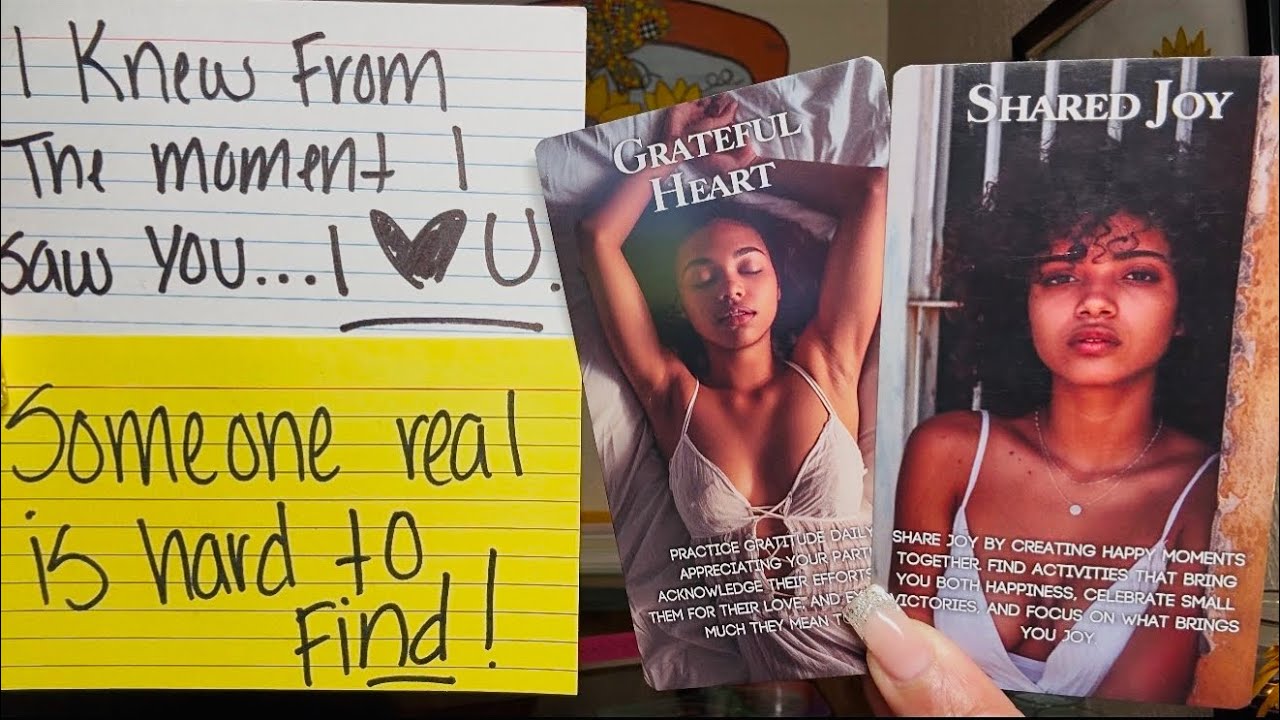 I Knew From
The moment I
saw You... I ♥ U.
Someone real
is hard to
Find!
GRATEFUL
HEART
PRACTICE GRATITUDE DAILY
APPRECIATING YOUR
ACKNOWLEDGE THEIR EFFORTS
THEM FOR THEIR LOVE, AND
MUCH THEY MEAN
SHARED JOY
SHARE JOY BY CREATING HAPPY MOMENTS
TOGETHER. FIND ACTIVITIES THAT BRING
YOU BOTH HAPPINESS, CELEBRATE SMALL
VICTORIES, AND FOCUS ON WHAT BRINGS
YOU JOY.